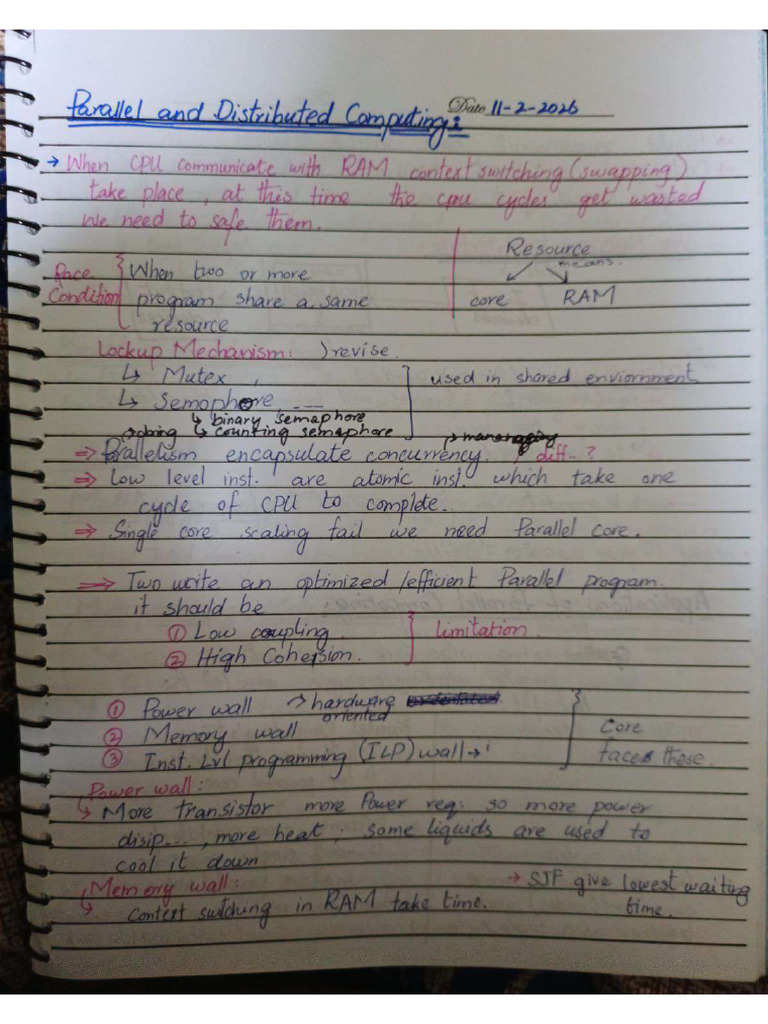 Parallel and Distributed Computing:
Date 11-2-2026
→ When CPU communicate with RAM context switching (swapping)
take place, at this time the cpu cycles get wasted
we need to safe them.
Resource
means.
core RAM
Race Condition
When two or more
program share a same
resource
Lockup Mechanism: ) revise.
↳ Mutex,
↳ Semaphore ---
↳ binary semaphore
↳ counting semaphore
used in shared enviornment
→ doing
→ managing
⇒ Parallelism encapsulate concurrency. diff..?
⇒ Low level inst. are atomic inst. which take one
cycle of CPU to complete.
⇒ Single core scaling fail we need Parallel core.
⇒ Two write an optimized /efficient Parallel program.
it should be
① Low coupling.
② High Cohersion.
limitation.
① Power wall → hardware
oriented
② Memory wall
③ Inst. Lvl programming (ILP) wall →
Core
faces these.
Power wall:
↳ More transistor more Power req: so more power
disip..., more heat; some liquids are used to
cool it down
Memory wall:
↳ context switching in RAM take time.
→ SJF give lowest waiting
time.